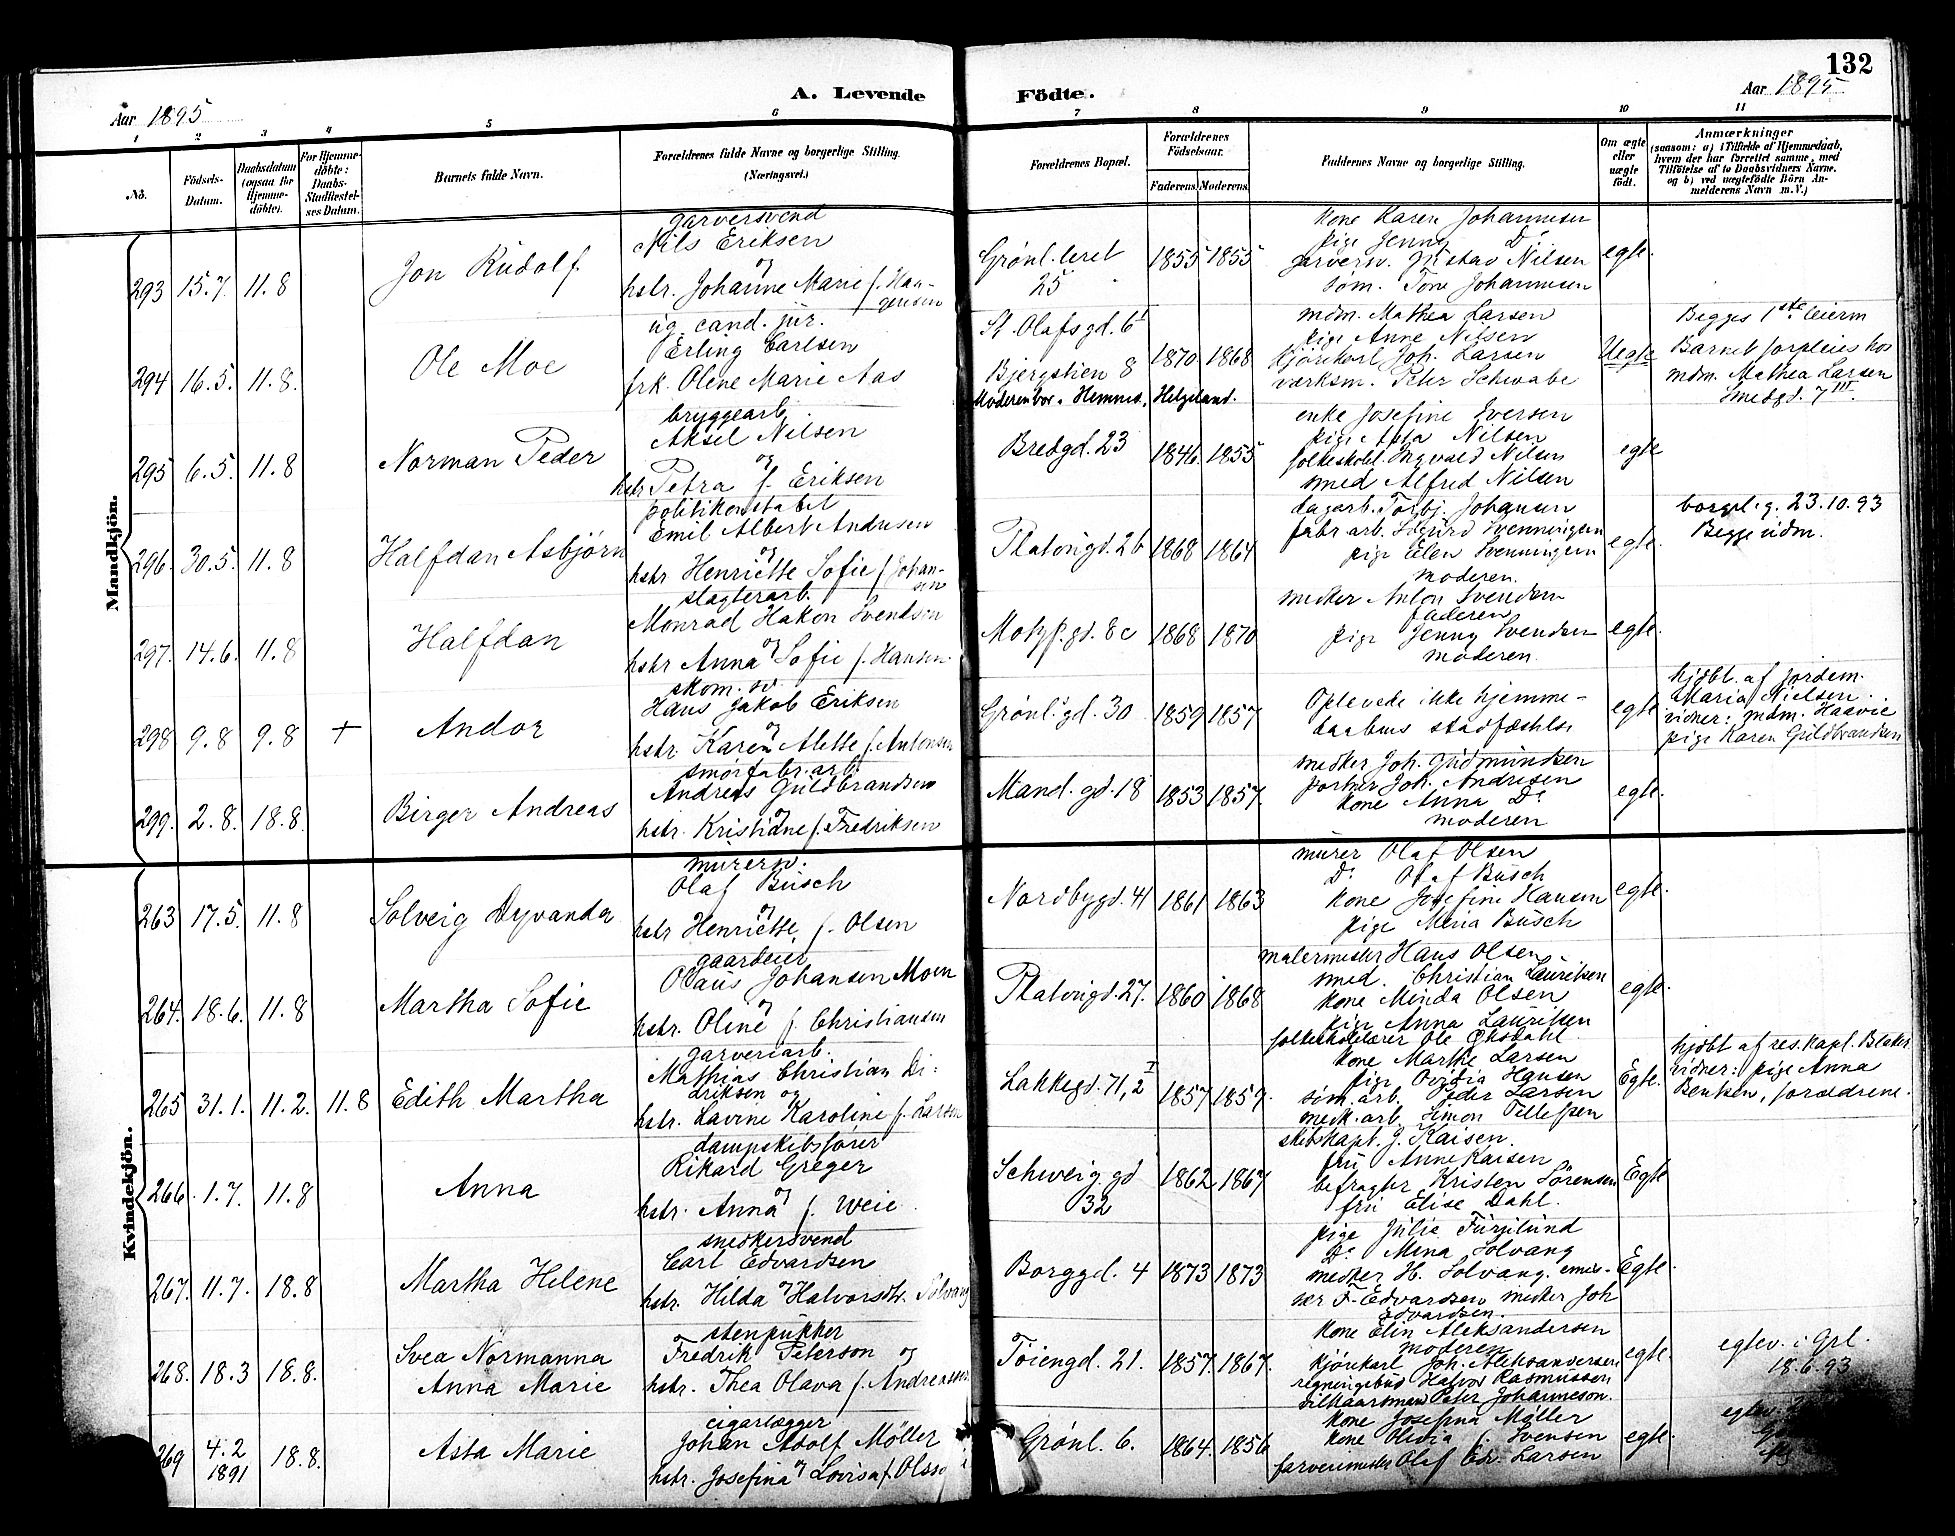 132
Aar 1895
A. Levende Födte.
Aar 1895
1 2 3 4 5 6 7 8 9 10 11
No.
Födsels-Datum.
Daabsdatum (ogsaa for Hjemme-döbte).
For Hjemme-döbte: Daabs-Stadfæstel-ses Datum.
Barnets fulde Navn.
Forældrenes fulde Navne og borgerlige Stilling. (Næringsvei.)
Forældrenes Bopæl.
Forældrenes Födselsaar.
Faderens. Moderens.
Faddernes Navne og borgerlige Stilling.
Om ægte eller uægte födt.
Anmærkninger
(saasom: a) i Tilfælde af Hjemmedaab, hvem der har forrettet samme, med Tilföielse af to Daabsvidners Navne. og b) ved uægtefödte Börn An-melderens Navn m. V.)
Mandkjön.
garversvend
Nils Eriksen
og
293 15.7 11.8 Jon Rudolf
hstr. Johanne Marie f. Haa-
gensen
Grönl. leret
25
1855 1855
kone Karen Johannesen
pige Jenny Do
garversv. Gustav Nilsen
söm. Tone Johannesen
egte.
ug. cand. jur.
Erling Carlsen
294 16.5. 11.8. Ole Moe
frk. Oline Marie Aas
St. Olafsgd. 6
Bjergstien 8
Moderen bor i Hemnes, Helgeland.
1870 1868
mdm. Mathea Larsen
pige Anne Nilsen
kjörekarl Joh. Larsen
værksm. Peter Schwabe
Uegte
Begges 1ste leierm
Barnet forpleies hos
mdm. Mathea Larsen
Smedgd. 7 III.
bryggearb.
Aksel Nilsen
og
295 6.5. 11.8 Norman Peder
hstr Petra f. Eriksen
Bredgd. 23 1846. 1855
enke Josefine Iversen
pige Asta Nilsen
folkeskol. Ingvald Nilsen
smed Alfred Nilsen
egte
politikonstabel
Emil Albert Andresen
og
296. 30.5. 11.8 Halfdan Asbjørn
hstr Henriette Sofie f. Johan-
sen
Platougd. 26 1868 1864
dagarb. Torbj. Johansen
fabr arb. Sigurd Svenningsen
pige Elen Svenningsen
moderen.
egte.
borgerl. g. 23.10.93
Begge udm.
slagterarb.
Monrad Hakon Svendsen
og
297. 14.6. 11.8 Halfdan
hstr Anna Sofie f. Hansen
Motzf. gd. 8c 1868 1870
snedker Anton Svendsen
faderen
pige Jenny Svendsen
moderen.
egte.
skom. sv.
Hans Jakob Eriksen
og
298 9.8 9.8 + Andor
hstr. Karen Alette f. Antonsen
Grönl. gd. 30 1859 1857
Oplevede ikke hjemme-
daabens stadfæstelse
egte
hjdbt. af jordem.
Maria Nielsen.
vidner: mdm. Haavie
pige Karen Guldbrandsen
smörfabr. arb.
Andreas Guldbrandsen
og
299. 2.8. 18.8. Birger Andreas
hstr. Kristiane f. Fredriksen
Mand. gd. 18 1853 1857.
snedker Joh. Gudmundsen
portner Joh. Andresen
kone Anna Do
moderen
egte.
Kvindekjön.
murersv.
Olaf Busch
og
263 17.5 11.8 Solveig Dyvanda
hstr Henriette f. Olsen
Nordbygd. 41 1861 1863
murer Olaf Olsen
Do Olaf Busch
kone Josefine Hansen
pige Maria Busch
egte.
gaardeier
Olaus Johansen Moen
og
264. 18.6. 11.8 Martha Sofie
hstr. Oline f. Christiansen
Platougd. 27. 1860 1868
malermester Hans Olsen
smed. Christian Lauritsen
kone Minda Olsen
pige Anna Lauritsen
egte.
garveriarb.
Mathias Christian Di-
driksen og
265 31.1. 11.2. 11.8 Edith Martha
hstr. Lavine Karoline f. Larsen
Lakkegd. 71, 2 I 1857 1859.
folkeskolelærer Ole Oksdahl.
kone Marthe Larsen
pige Ovidia Hansen
söm. arb. Peder Larsen
mek. arb. Simon Tellefsen
Egte.
hjdbt af res. kapl. Blaker
vidner: pige Anna
Bentsen, forældrene.
dampskibsförer
Rikard Greger
og
266. 1.7. 11.8 Anna
hstr. Anna f. Weie.
Schweig. gd
32
1862 1867
skibskapt. J. Kaisen.
fru Anne Kaisen
befragter Kristen Sörensen
fru Elise Dahl.
Egte
snedkersvend
Carl Edvardsen
og
267. 11.7. 18.8 Martha Helene
hstr. Hilda Halvorsdtr. Solvang
Borggd. 4 1873 1873
pige Julie Furulund
Do Mina Solvang
snedker H. Solvang.
F. Edvardsen snedker Joh
Edvardsen.
Egte.
stenpukker
Fredrik Peterson og
268. 18.3 18.8. Svea Normanna
Anna Marie
hstr. Thea Olava f. Andreassen
Töiengd. 21. 1857. 1867.
kone Elin Aleksandersen
moderen
kjörekarl Joh. Aleksandersen
regningsbud Halvor Rasmussen
vilkaarsmand Peter Johanneson.
egte.
egtev. i Grl.
18.6.93
cigarlægger
Johan Adolf Möller
og
269 4.2 1891 18.8. Asta Marie
hstr. Josefina Lovisa f. Olsso
Grönl. 6. 1864. 1856
kone Josefina Möller
kone Olivia f. Svensen
farvermester Olaf Edv. Larsen
egte.
egtev.